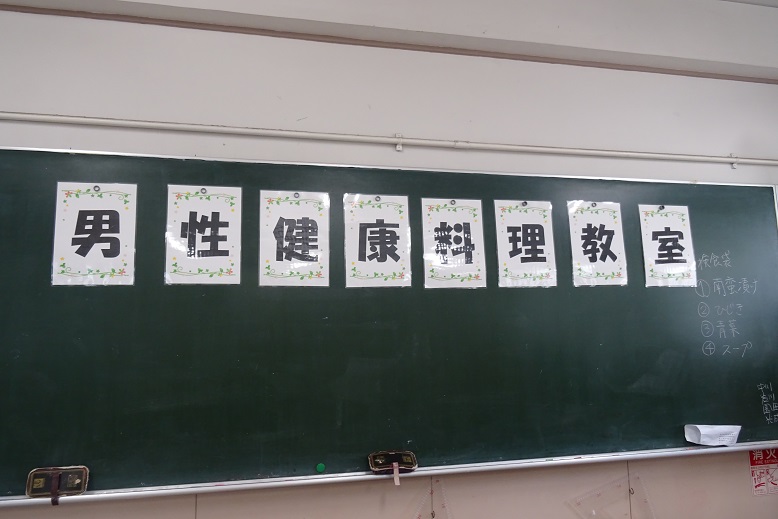 男性健康料理教室
検食袋
① 南蛮漬け
② ひじき
③ 青菜
④ スープ
消火